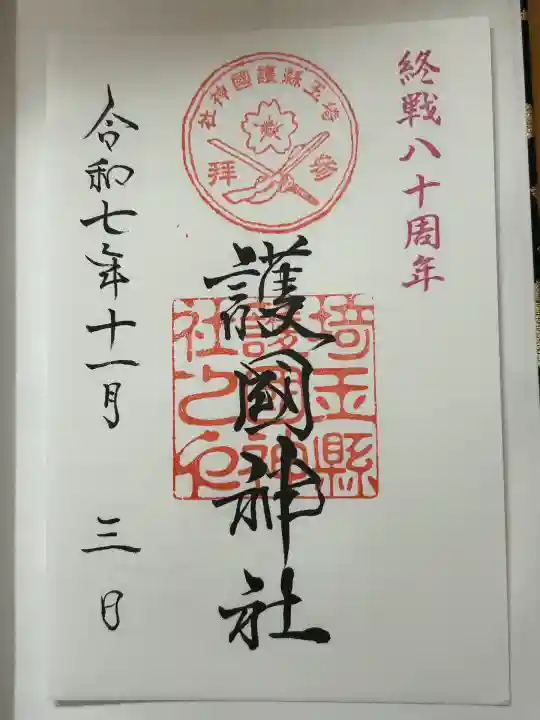 終戦八十周年
埼玉縣護國神社
參拜
護國神社
埼玉縣護國神社之印
令和七年十一月三日